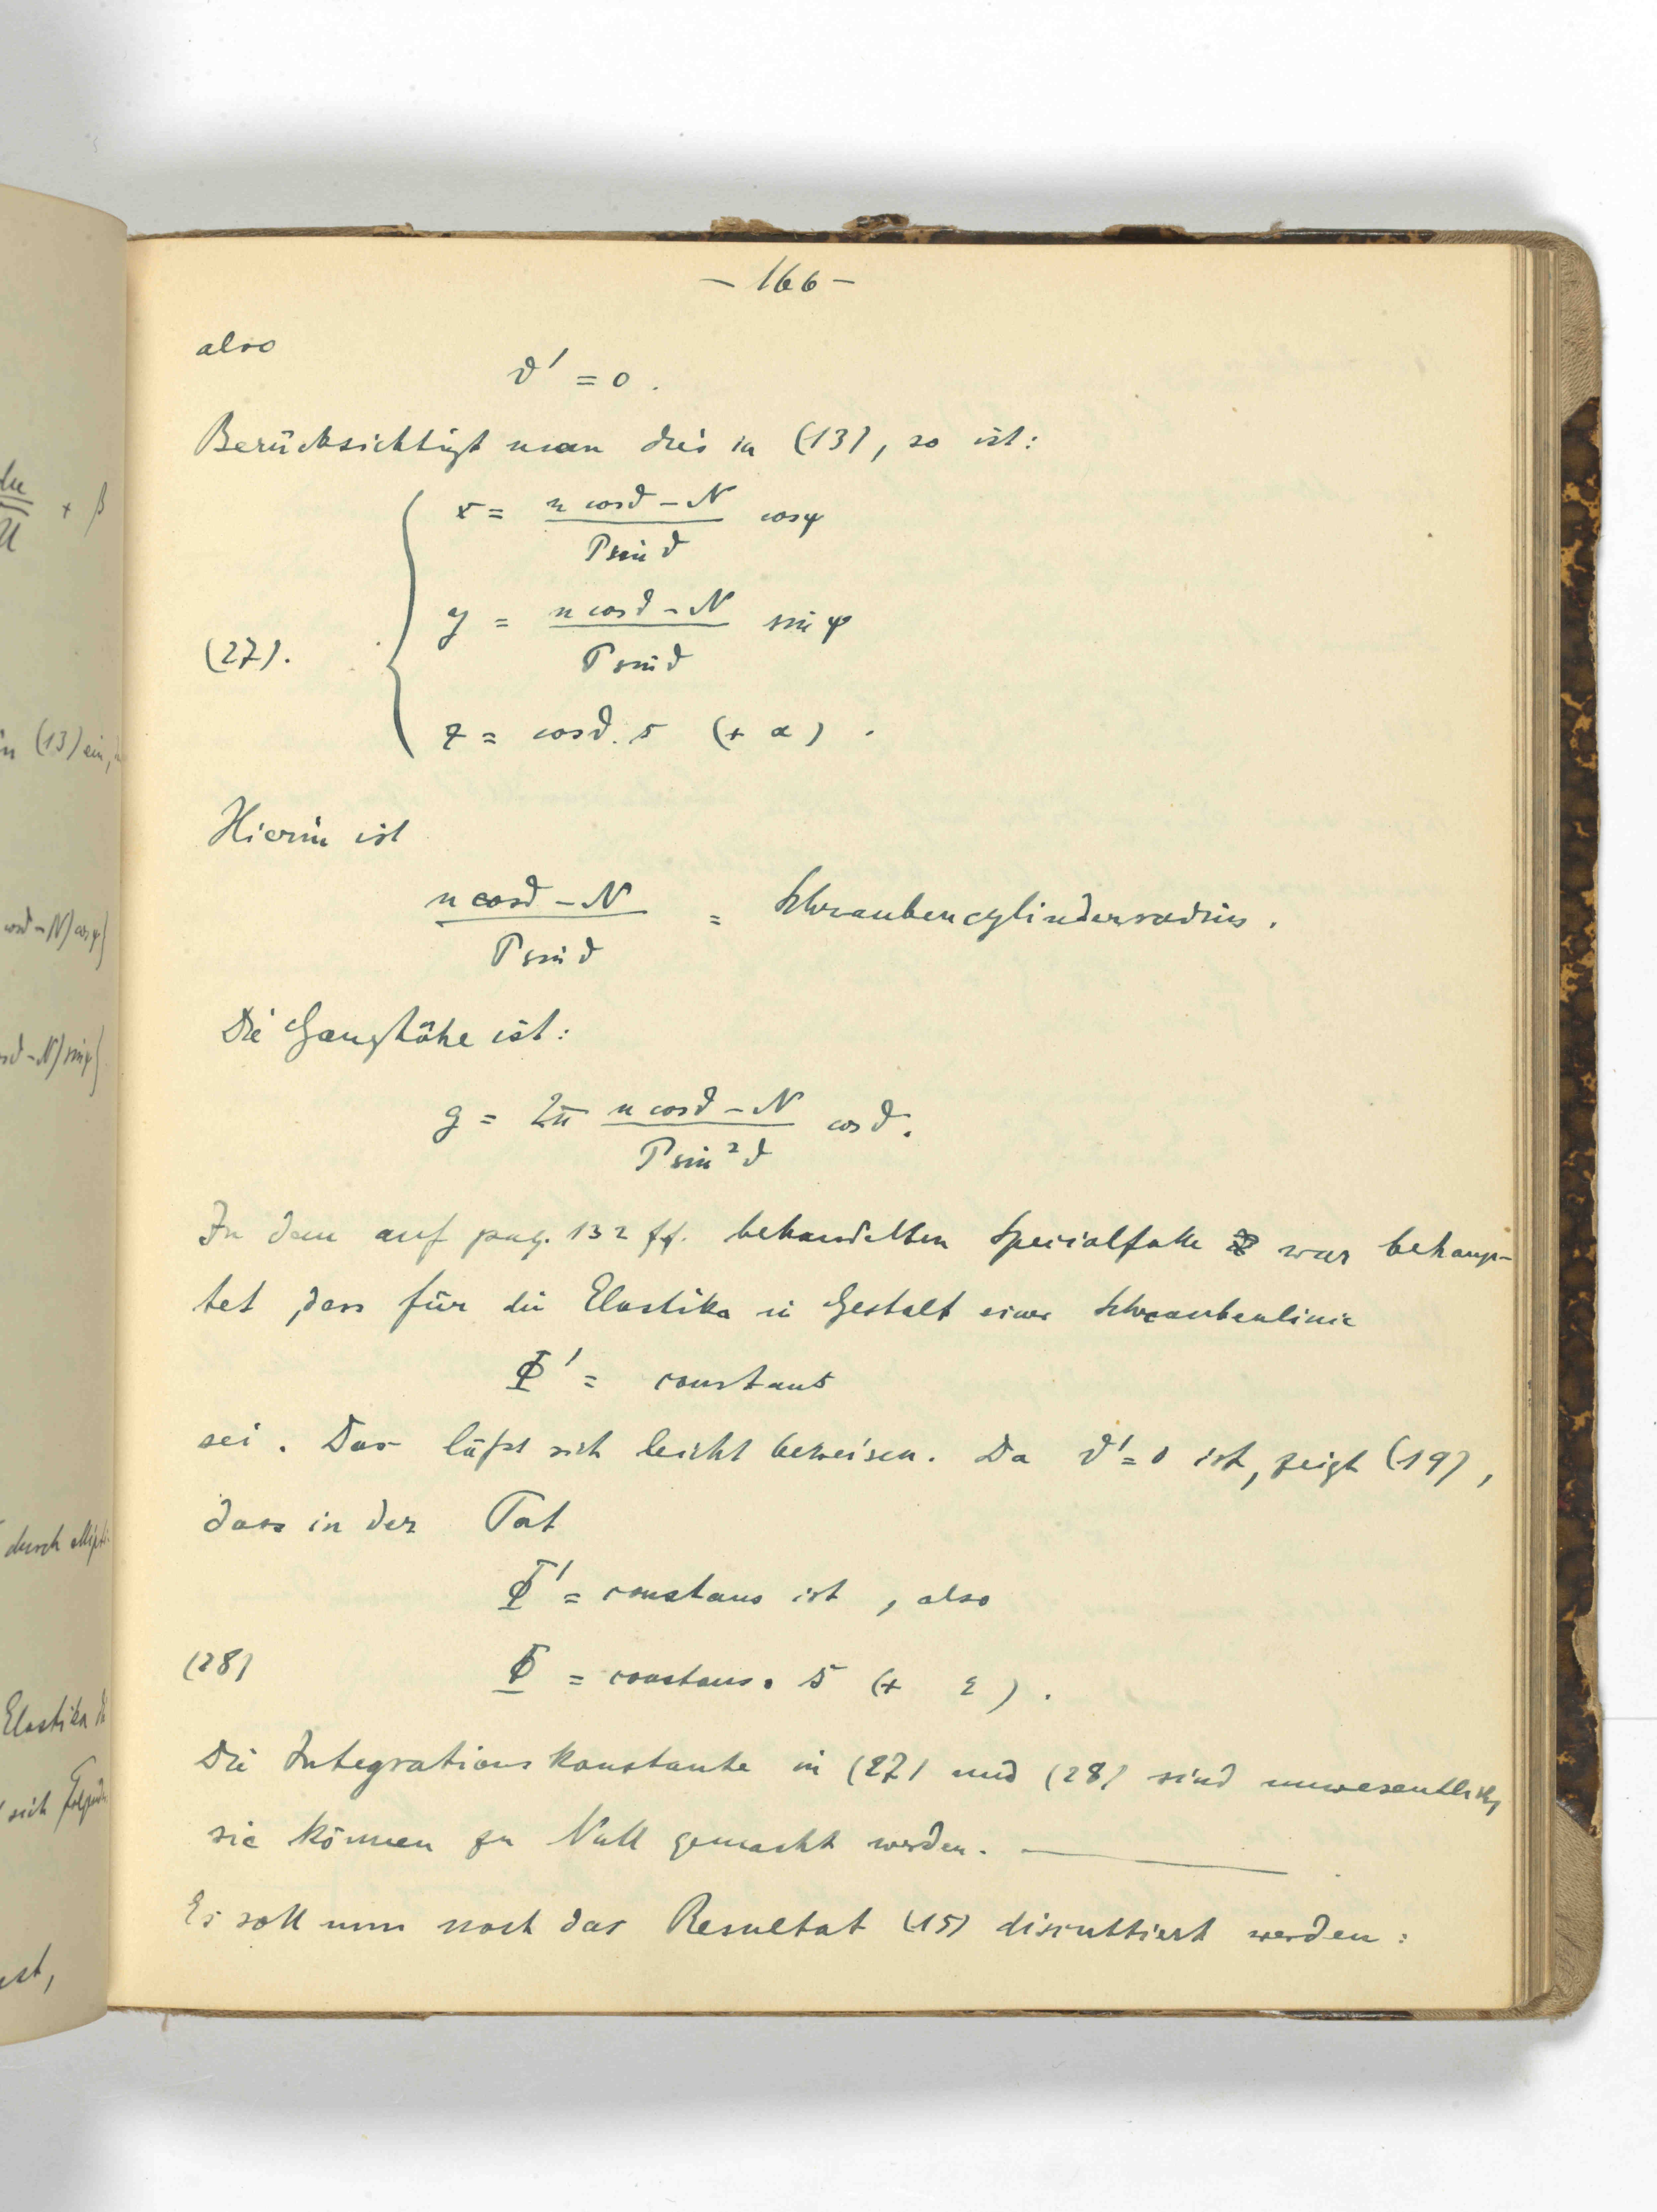 du/U + β
in (13) ein,
cosϑ - N) cosψ}
sϑ - N) sinψ}
durch ellipti-
Elastika
sich
ist,
- 166 -
also
ϑ' = 0 .
Berücksichtigt man dies in (13), so ist:
x = (n cosϑ - N)/(P sinϑ) cosψ
y = (n cosϑ - N)/(P sinϑ) sinψ
(27).
z = cosϑ . s (+ α) .
Hierin ist
(n cosϑ - N)/(P sinϑ) = Schraubencylinderradius .
Die Ganghöhe ist:
g = 2π (n cosϑ - N)/(P sin²ϑ) cosϑ.
In dem auf pag. 132 ff. behandelten Specialfalle war behaup-
tet, dass für die Elastika in Gestalt einer Schraubenlinie
Φ' = constans
sei . Das läßt sich leicht beweisen. Da ϑ' = 0 ist, zeigt (19),
dass in der Tat
Φ' = constans ist , also
(28) Φ = constans . s (+ ε) .
Die Integrationskonstante in (27) und (28) sind unwesentlich,
sie können zu Null gemacht werden. —
Es soll nun noch das Resultat (15) discuttiert werden :